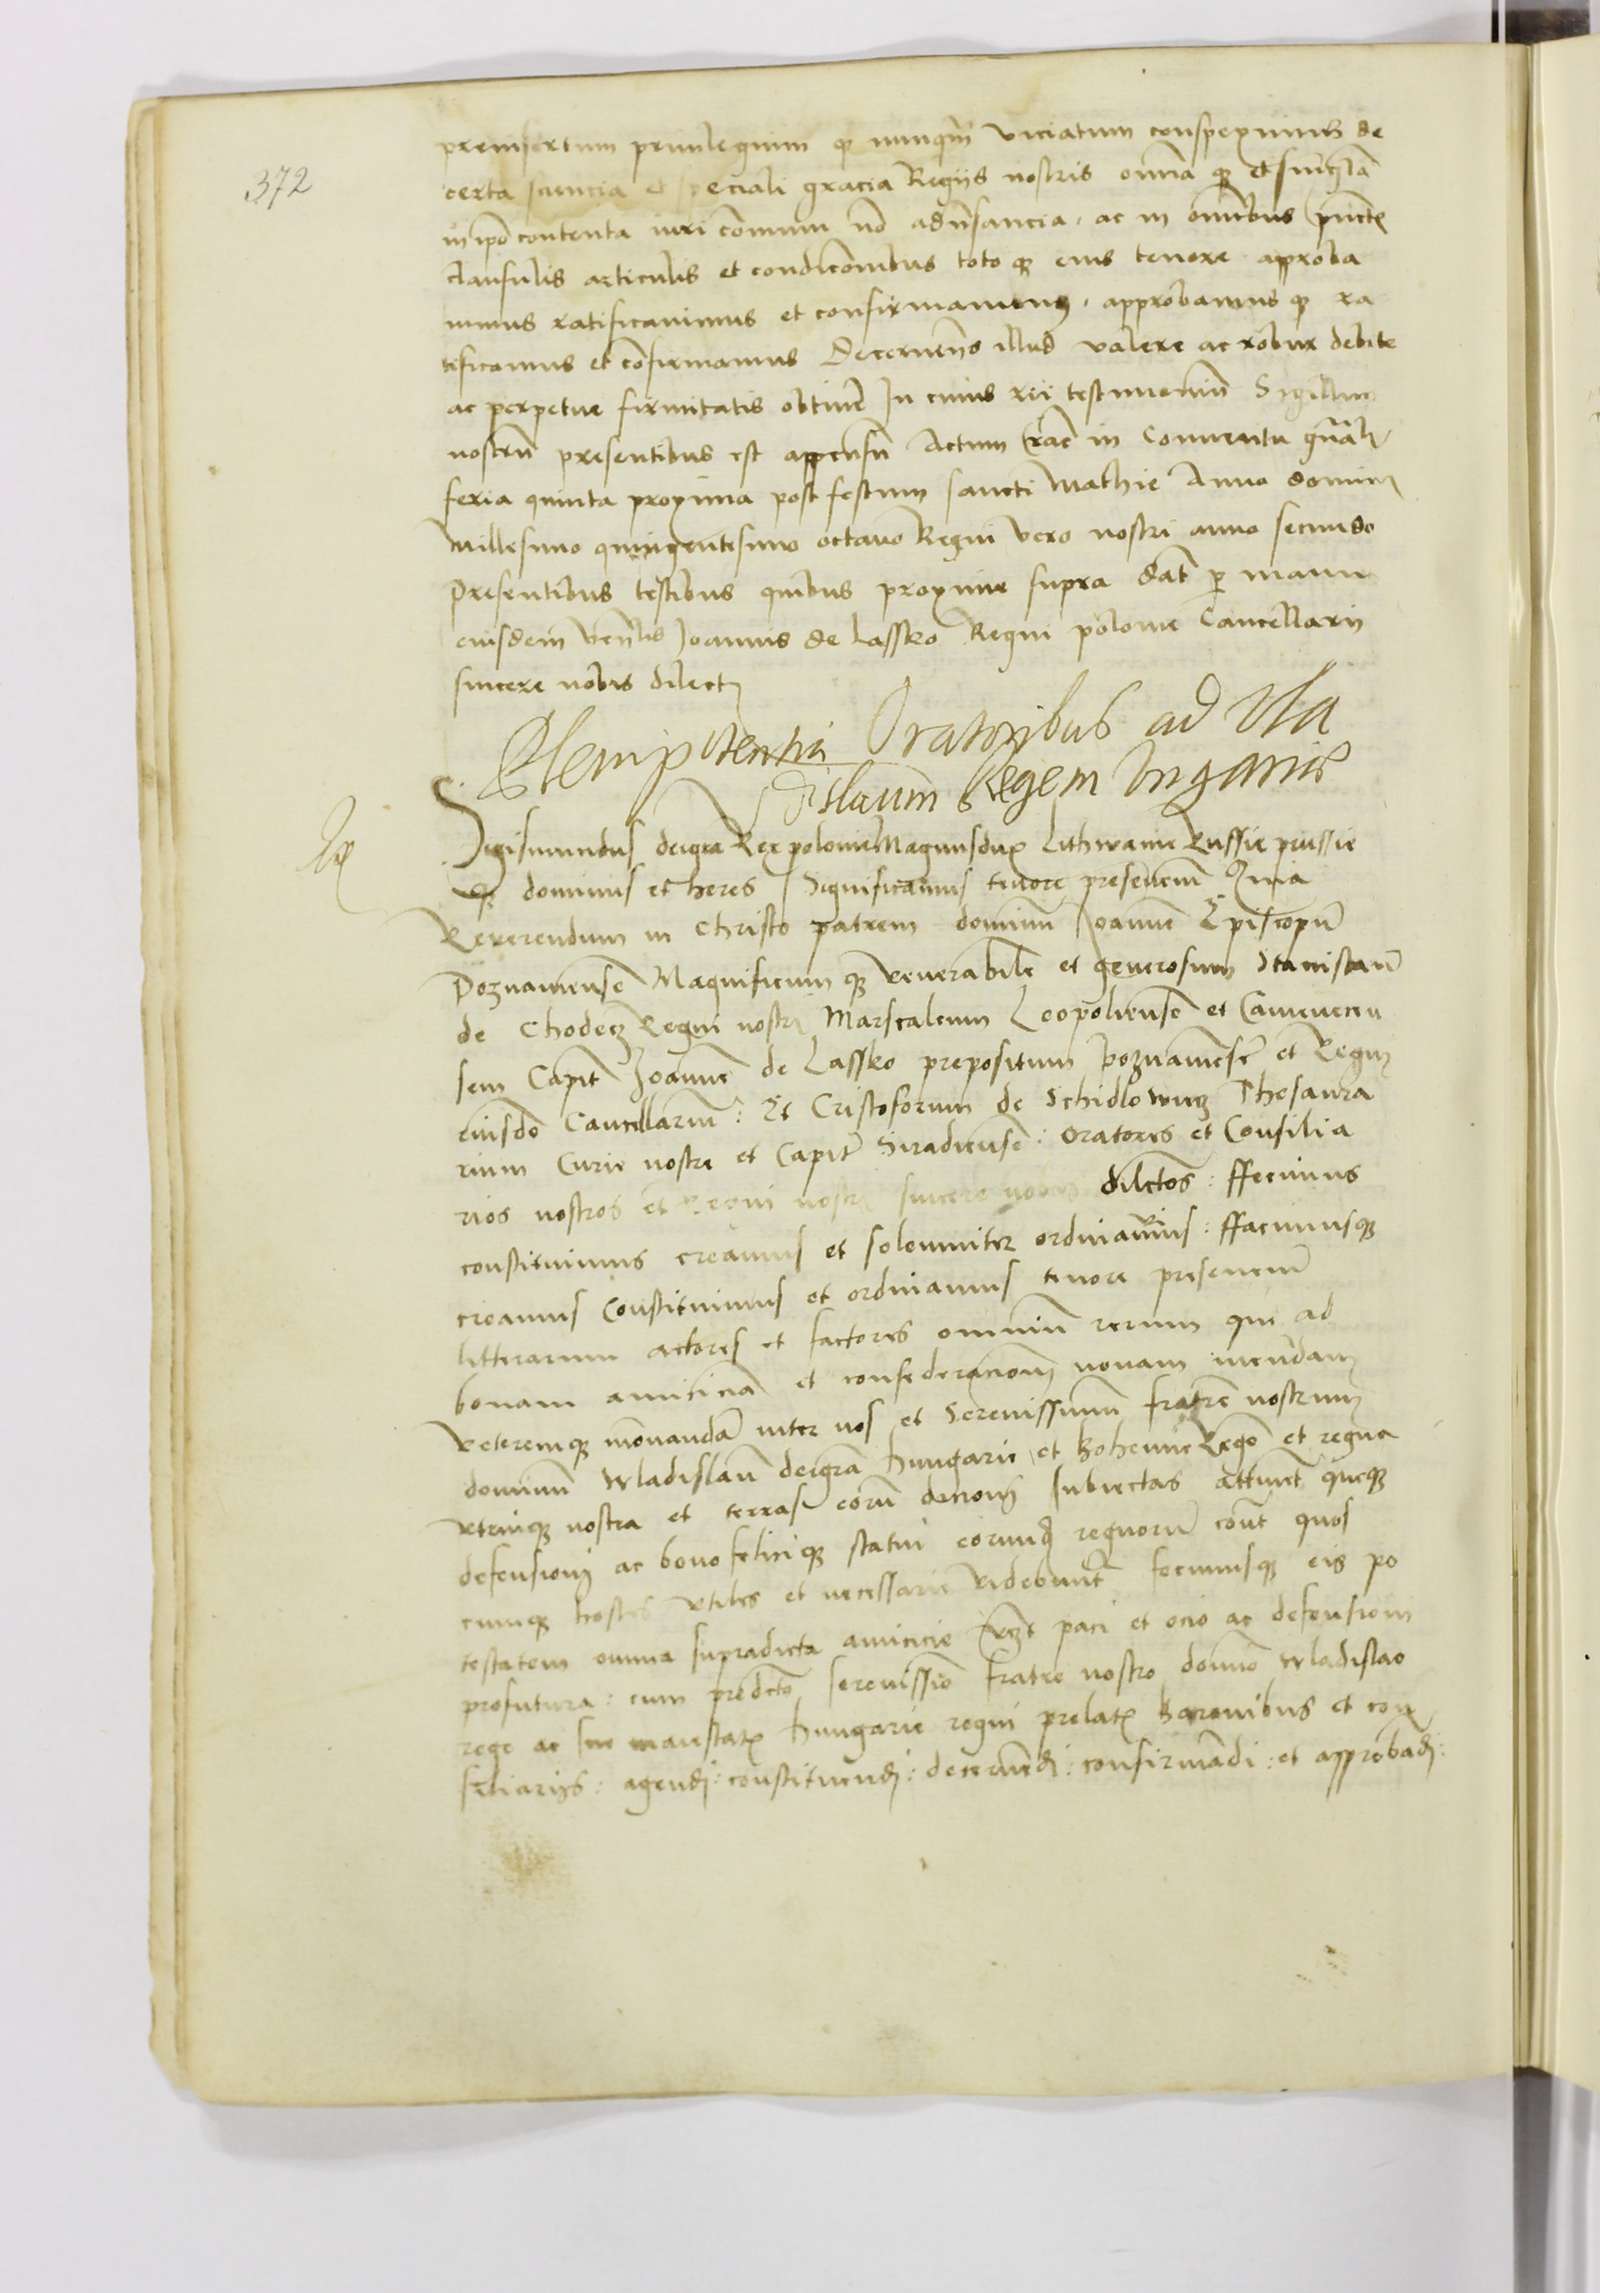 372
preinsertum privilegium qz nunqm viciatum conspeximus de
certa sciencia et speciali gracia Regijs nostris omnia qz et singula
in ipo contenta iuri comuni no adusancia, ac in omibus punctis
clausulis articulis et condicombus toto qz eius tenore approba
uimus ratificauimus et confirmauimus, approbamus qz ra
tificamus et confirmamus Decernens illud valere ac robur debite
ac perpetue firmitatis obtinere In cuius rei testimonium Sigillum
nostru presentibus est appensu Actum Crac in Conuentu gnali
feria quinta proxima post festum sancti Mathie Anno domini
Millesimo quingentesimo octauo Regni vero nostri anno secundo
Presentibus testibus quibus proxime supra dat p manus
eiusdem venlis Joannis de Lassko Regni polonie Cancellarij
sincere nobis dilecti
Plenipotentia Oratoribus ad Vla
dislaum Regem Vngarie
Sigismundus dei gra Rex polonie Magnus dux Lithwanie Russie prussie
qz dominus et heres Significamus tenore presencium Quia
Reverendum in Christo patrem dominu Joanne Episcopu
Poznaniense Magnificum qz venerabile et generosum Stanislau
de Chodecz Regni nostri Marscalcum Leopoliense et Camenecen
sem Capit Joanne de Lassko prepositum Poznaniense et Regni
eiusde Cancellariu: Et Cristoforum de Schidlowyecz Thesaura
rium Curie nostre et Capit Siradiense: Oratores et Consilia
rios nostros et Regni nostri sincere nobis dilctos: ffecimus
constituimus creauimus et solemniter ordinauimus: ffacimusqz
creamus Constituimus et ordinamus tenore presenciu
litterarum actores et factores omniu rerum que ad
bonam amicicia et confederacionem nouam ineundam
veteremqz inouanda inter nos et Serenissimu fratre nostrum
dominu Wladislau dei gra Hungarie et Bohemie Rege et regna
vtriusqz nostra et terras eoru dicioni subiectas attinet queqz
defensioni ac bono felici qz statui eorundem regnoru cont quos
cumqz hostes vtiles et necessarie videbunt fecimusqz eis po
testatem omnia supradicta amicicie vczt paci et ocio ac defensioni
profutura: cum predcto serenissio fratre nostro domio Wladislao
rege ac sue maiestatis Hungarie regni prelatis Baronibus et con
siliarijs: agendi: constituendi: decernendi: confirmandi: et approbadi: